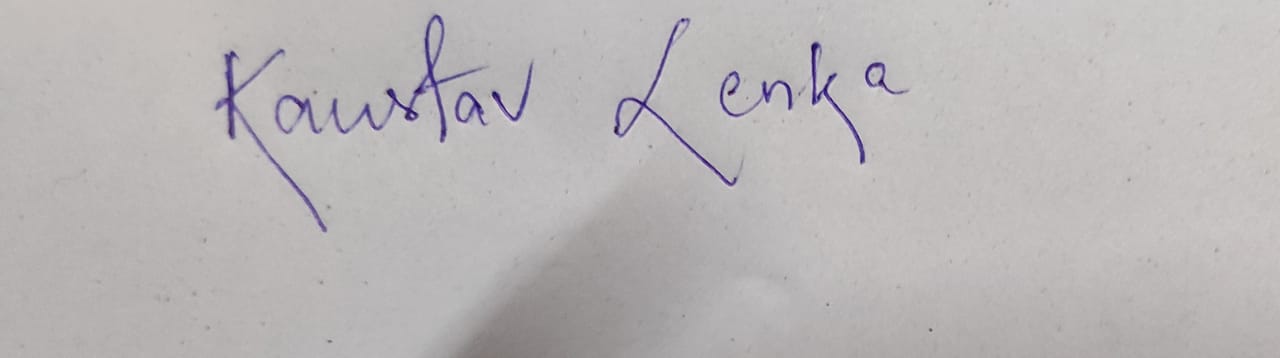 Kaustav Lenka